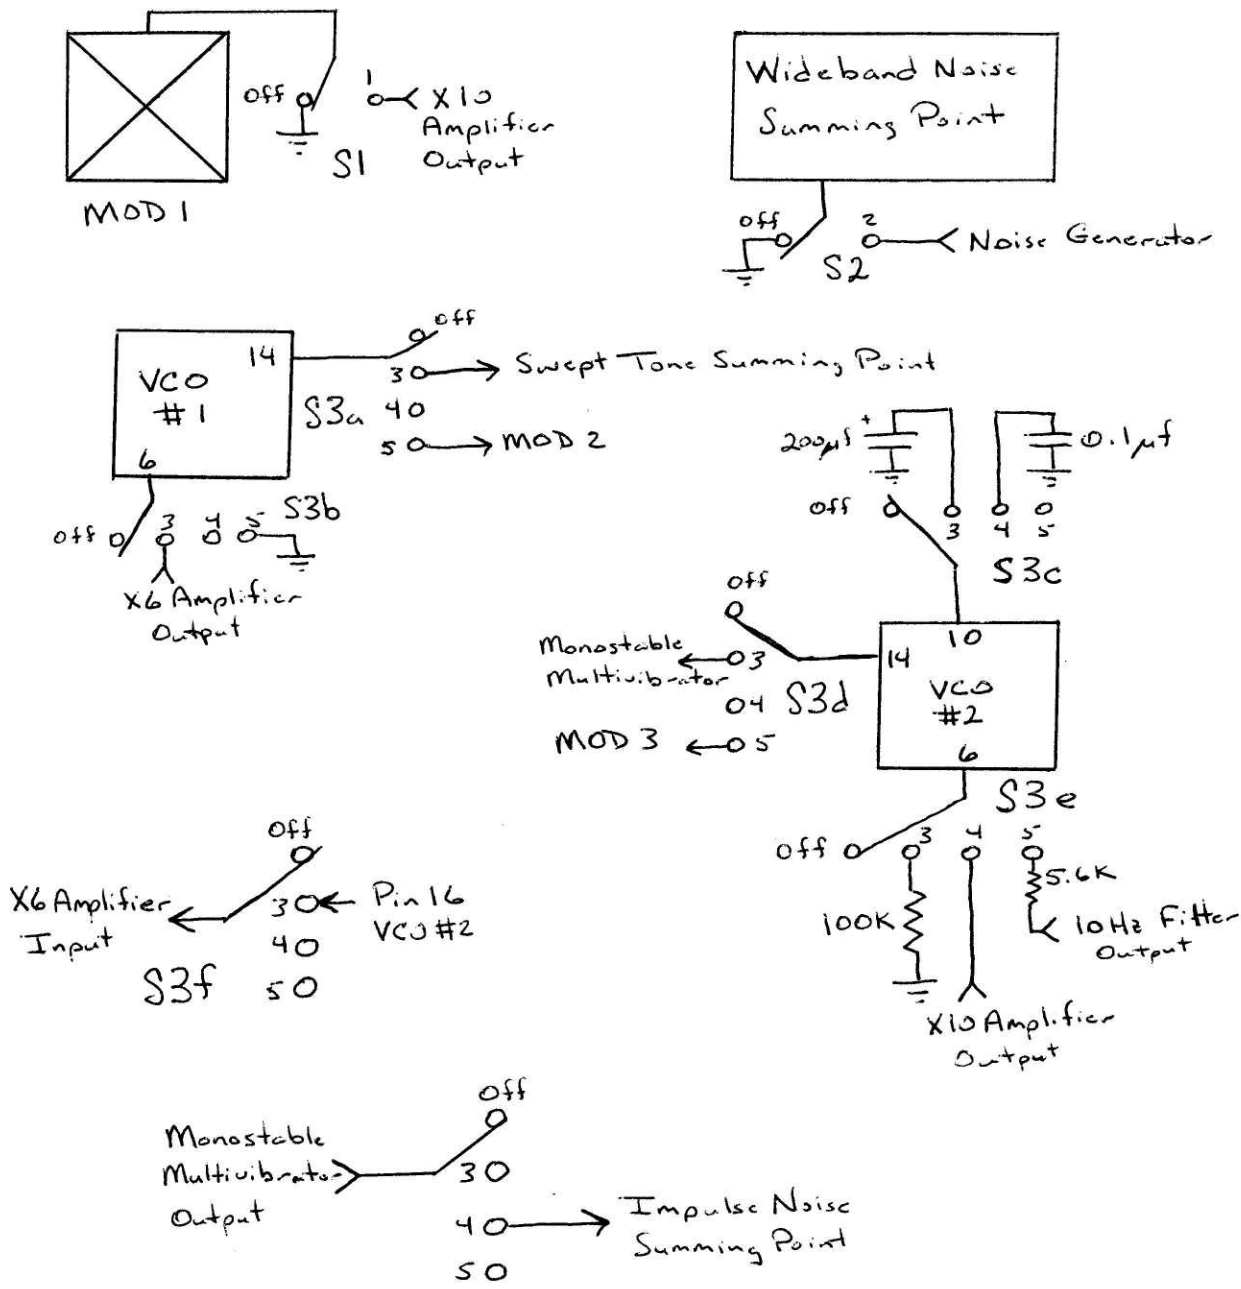 Off
1
X10
Amplifier
Output
S1
MOD 1
Wideband Noise
Summing Point
Off
2
Noise Generator
S2
14
VCO
#1
6
Off
3
Swept Tone Summing Point
S3a
4
5
MOD 2
S3b
Off
3
4
5
X6 Amplifier
Output
+
200µf
0.1µf
Off
3
4
5
S3c
Off
Monostable
Multivibrator
3
4
S3d
MOD 3
5
10
14
VCO
#2
6
S3e
Off
3
4
5
100K
5.6K
10Hz Filter
Output
X10 Amplifier
Output
Off
X6 Amplifier
Input
3
Pin 16
VCO #2
4
S3f
5
Off
Monostable
Multivibrator
Output
3
4
Impulse Noise
Summing Point
5